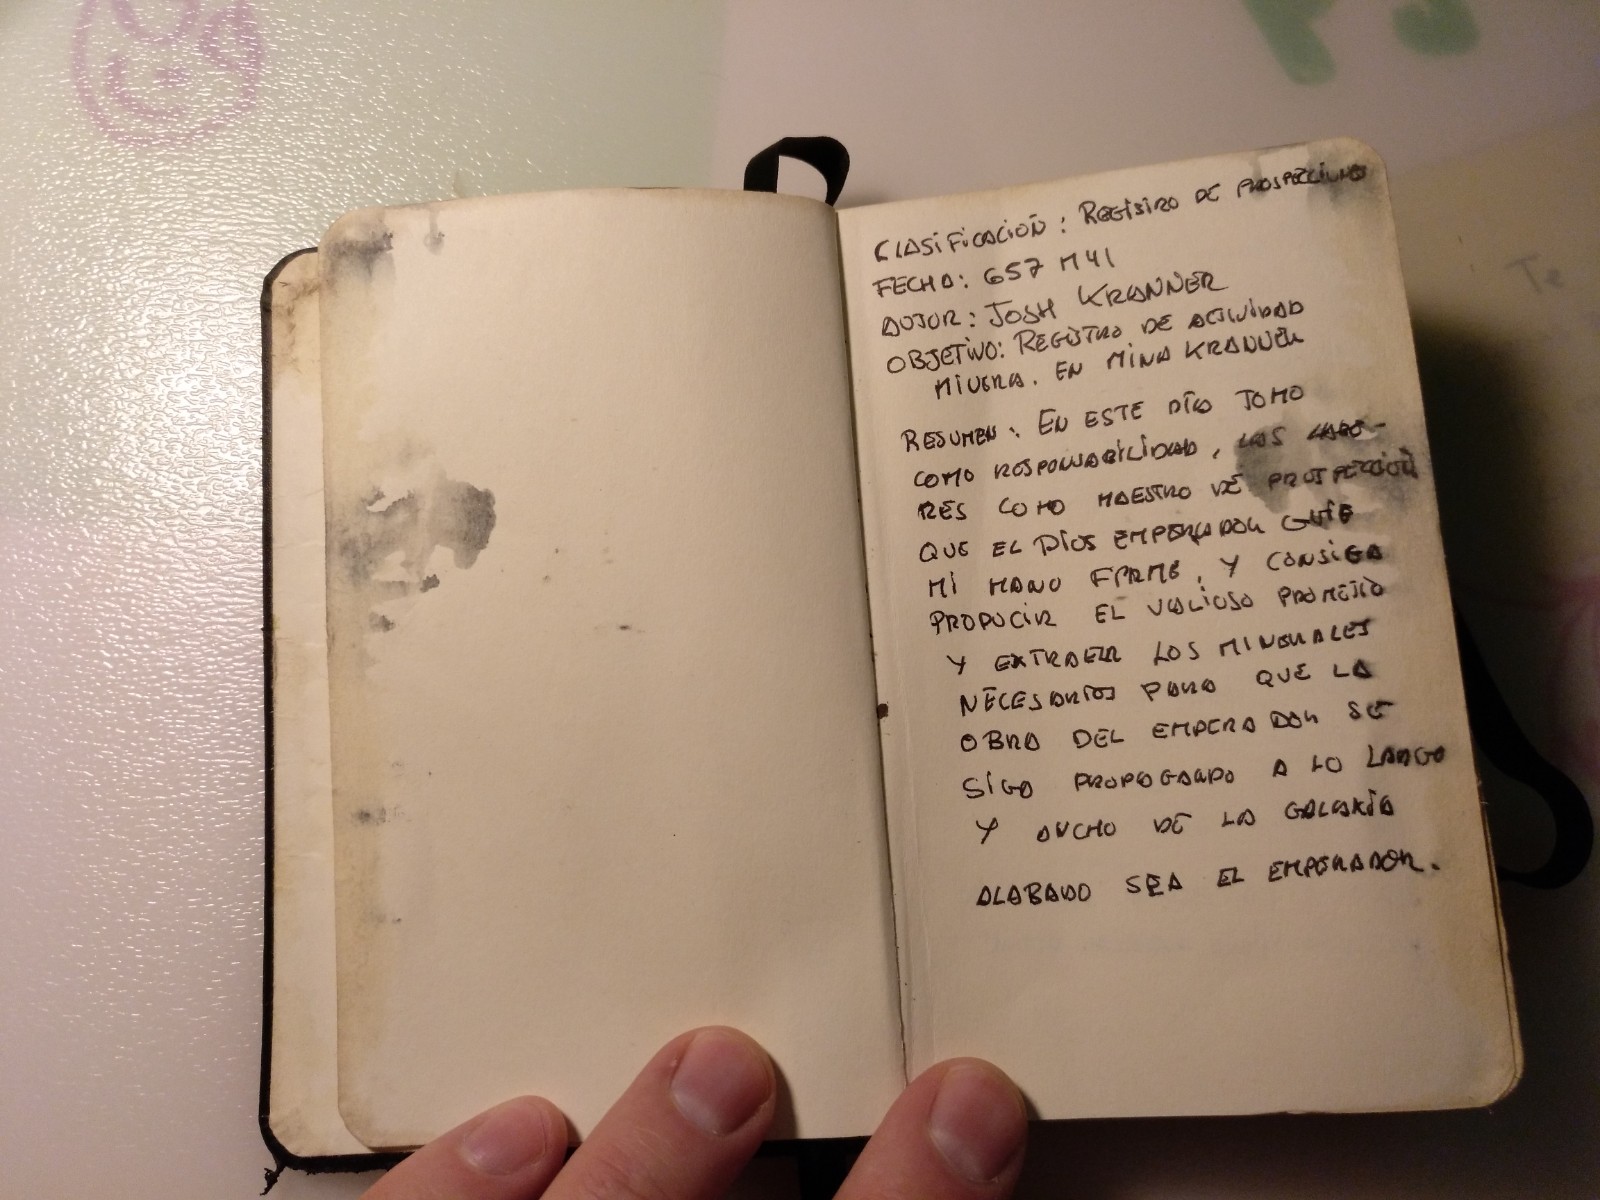 CLASIFICACIÓN: REGISTRO DE PROSPECCIONO
FECHA: 657 M41
AUTOR: JOSH KRANNER
OBJETIVO: REGISTRO DE ACTIVIDAD
MINERA. EN MINA KRANNER
RESUMEN: EN ESTE DÍA TOMO
COMO RESPONSABILIDAD, LAS LABO-
RES COMO MAESTRO DE PROSPECCIÓN
QUE EL DIOS EMPERADOR GUÍE
MI MANO FIRME, Y CONSIGA
PRODUCIR EL VALIOSO PROMETIO
Y EXTRAER LOS MINERALES
NECESARIOS PARA QUE LA
OBRA DEL EMPERADOR SE
SIGA PROPAGANDO A LO LARGO
Y ANCHO DE LA GALAXIA
ALABADO SEA EL EMPERADOR.